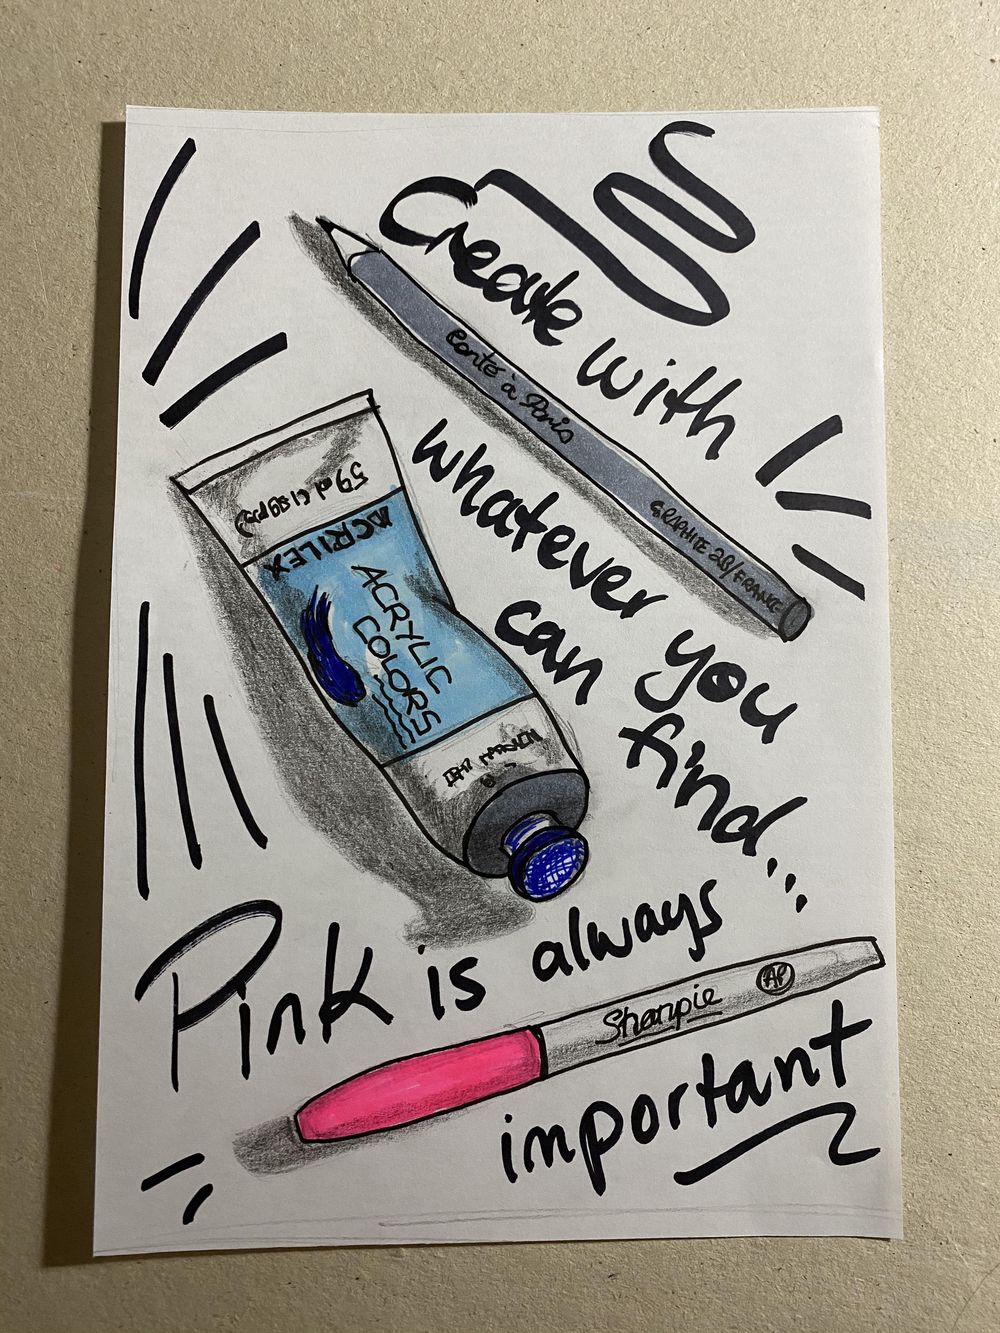 Create with
whatever you
can find...
Conté à Paris
GRAPHITE 2B/FRANCE
59ml
ACRILEX
ACRYLIC
COLORS
Pink is always
Sharpie
AP
important